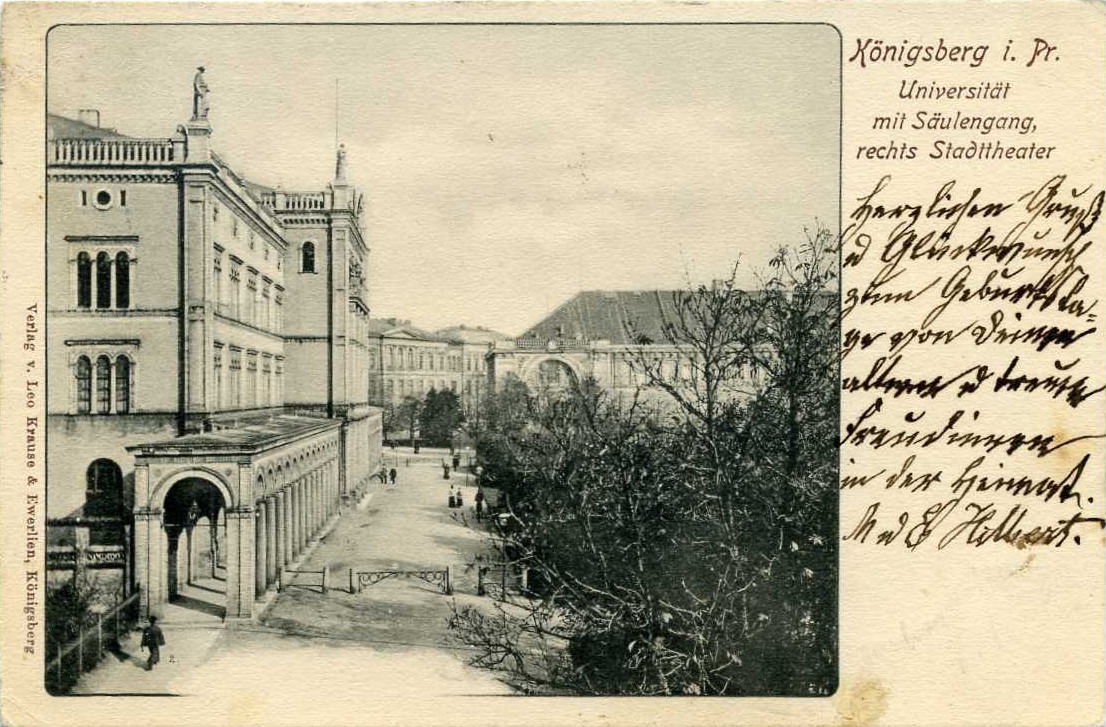 Königsberg i. Pr.
Universität
mit Säulengang,
rechts Stadttheater
Herzlichen Gruß
u Glückwunsch
zum Geburtsta-
ge von Deinen
alten u treuen
Freundinnen
in der Heimat.
M u E Hilbert.
Verlag v. Leo Krause & Ewerlien, Königsberg